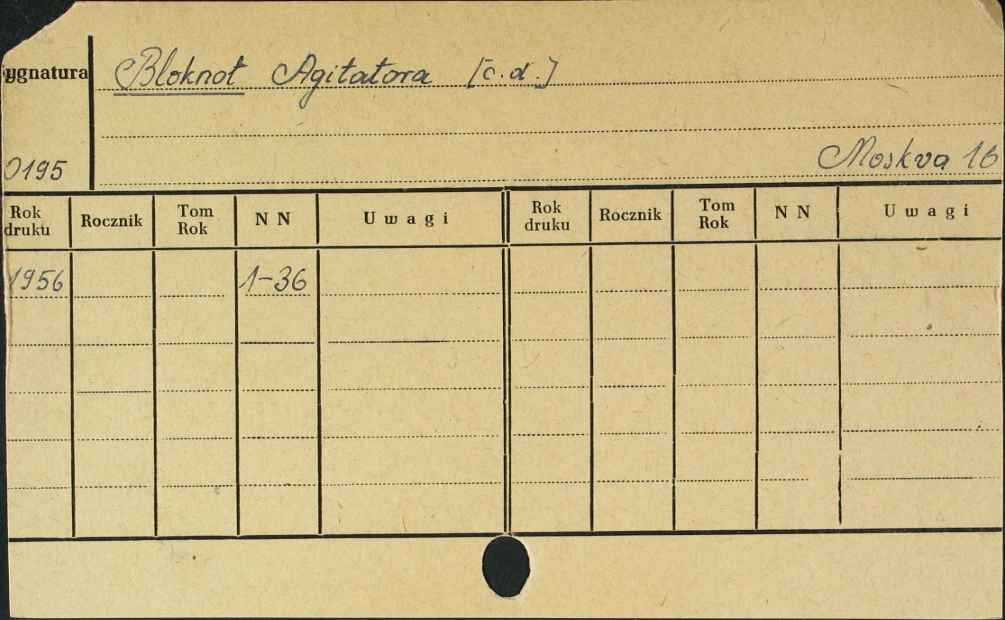 ygnatura Bloknot Agitatora [c.d.]
0195 Moskva 16
Rok druku Rocznik Tom Rok NN Uwagi Rok druku Rocznik Tom Rok NN Uwagi
1956 1-36